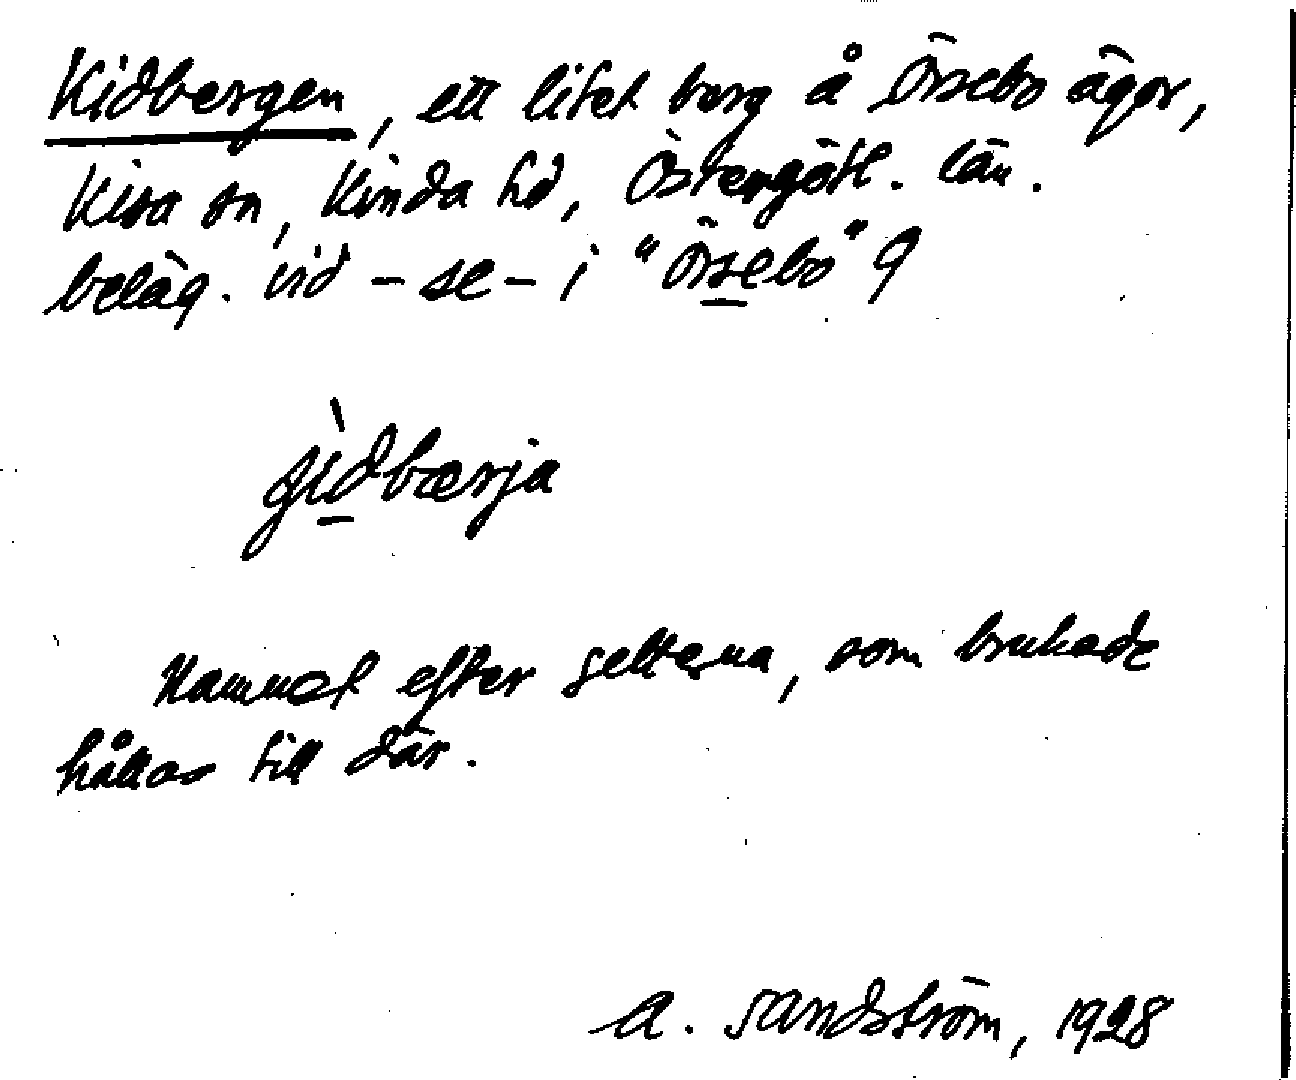 Kidbergen, ett litet berg å Örsebo ägor,
Kisa sn, Kinda hd, Östergötl. län.
beläg. vid - se - i "Örsebo" 9
jìdbærja
Namnet efter getterna, som brukade
hållas till där.
A. Sandström, 1928